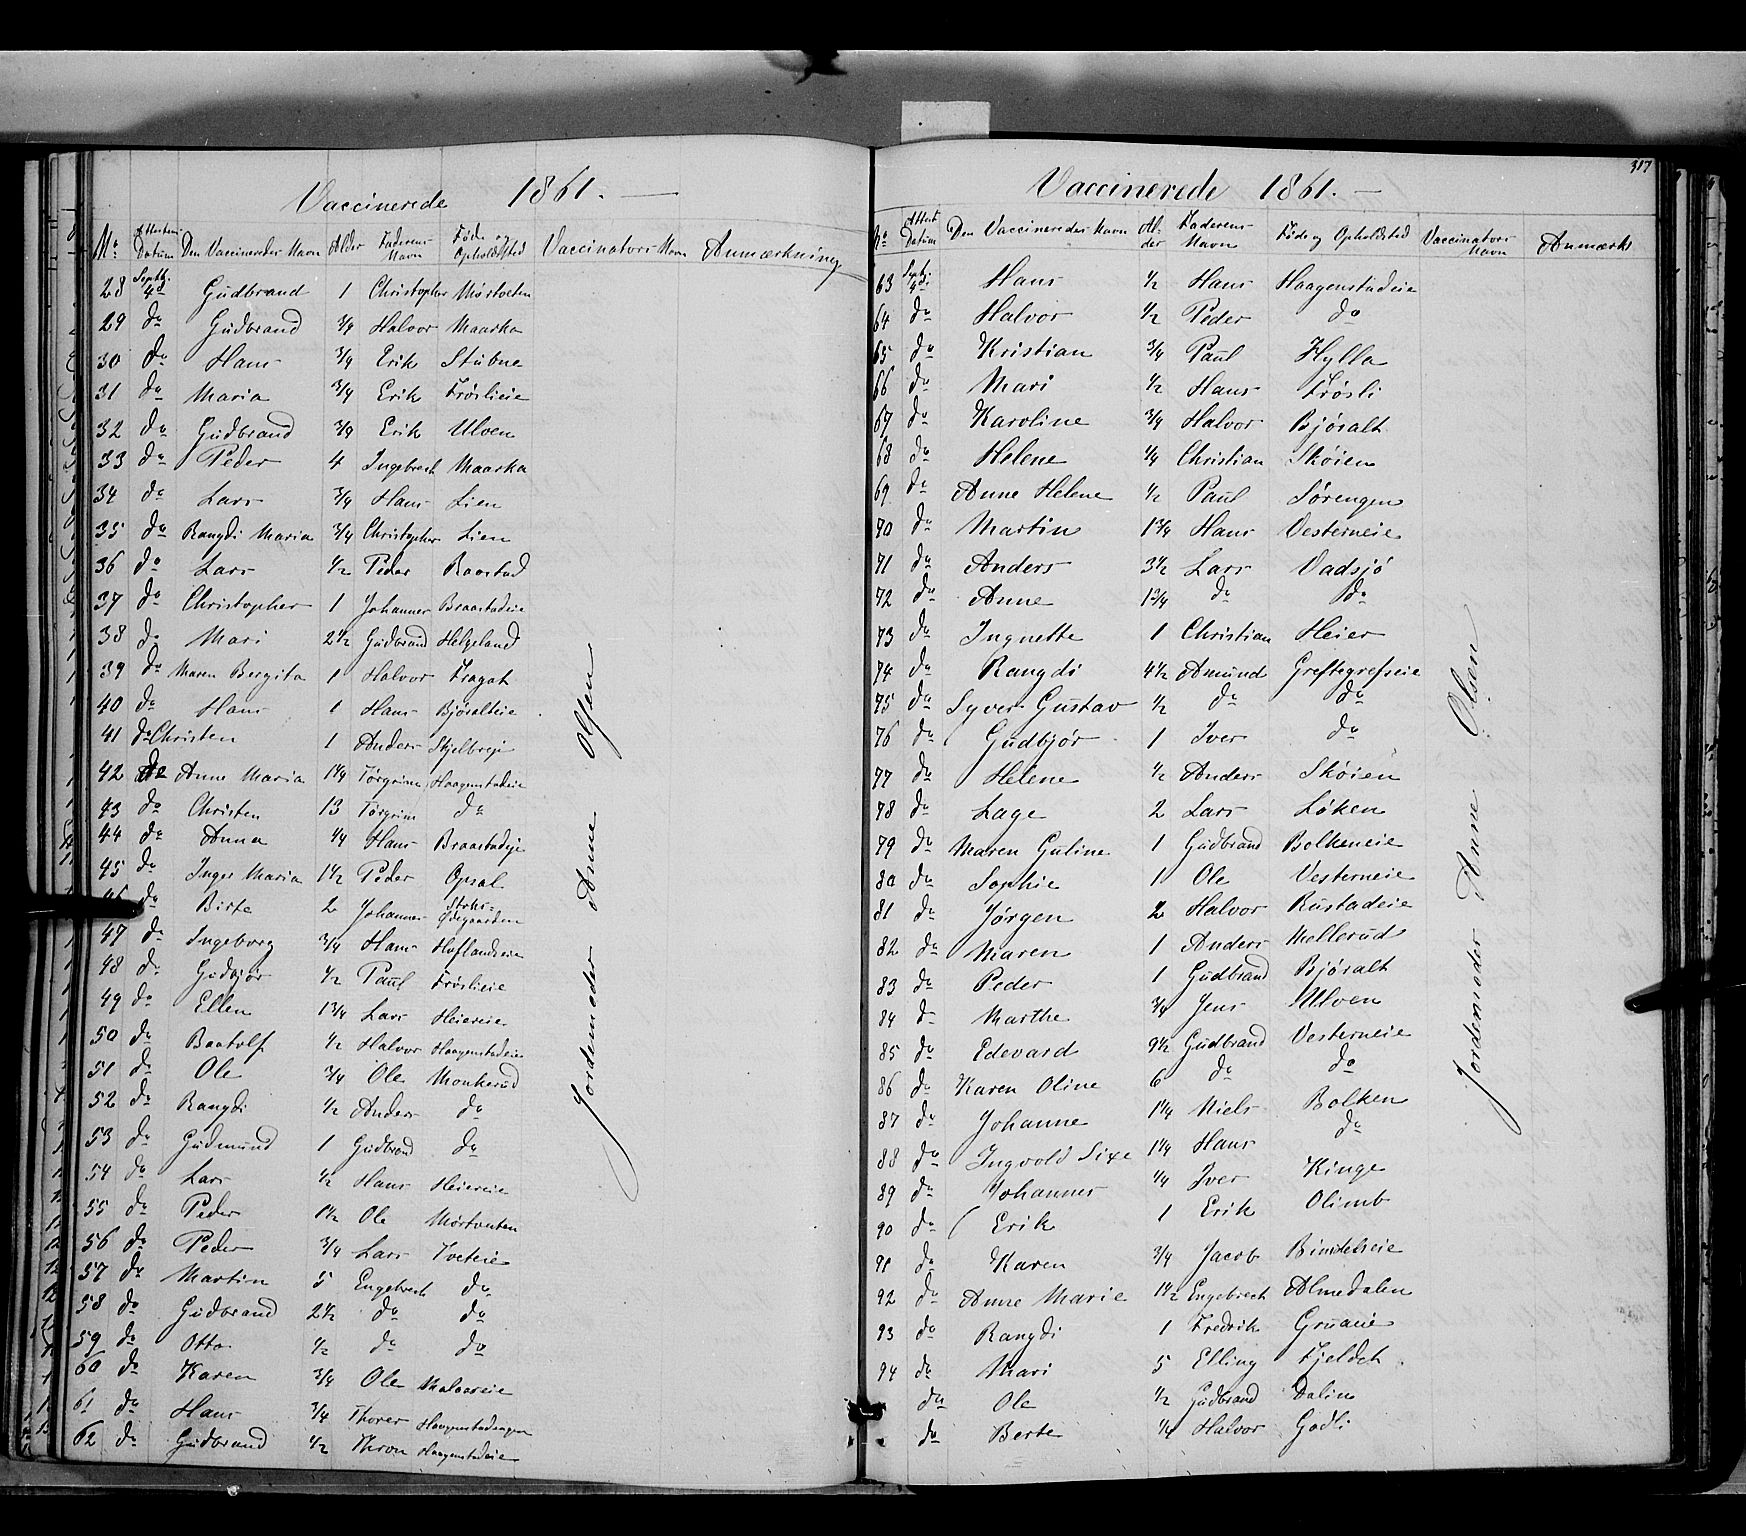 Vaccinerede 1861. —
No Attestens Datum Den Vaccineredes Navn Alder Faderens Navn Føde og Opholdsted Vaccinators Navn Anmærkning
28 Septb. 4d Gudbrand 1 Christopher
29 do Gudbrand 3/4 Halvor Maarka
30 do Hans 3/4 Erik Stubne
31 do Maria 3/4 Erik Frøslieie
32 do Gudbrand 3/4 Erik Ulven
33 do Peder 4 Ingebrech Maarka
34 do Lars 3/4 Hans Lien
35 do Rangdi Maria 3/4 Christopher Lien
36 do Lars 1/2 Peder Raastad
37 do Christopher 1 Johannes Braastadeie
38 do Mari 2 1/2 Gudbrand Helgeland
39 do Maren Bergita 1 Halvor Fragat
40 do Hans 1 Hans Bjøralteie
41 do Christen 1 Anders Skjelbreji
42 do Anne Maria 1 1/4 Torgrim Haagenstadeie
43 do Christen 13 Torgrim do
44 do Anna 1/4 Hans Braastadeje
45 do Inger Maria 1 1/2 Peder Opsal
46 do Birte 2 Johannes Ødegaarden
47 do Ingeborg 3/4 Hans Hoflandseie
48 do Gudbjør 1/2 Paul Frøslieie
49 do Ellen 1 3/4 Lars Heiereie
50 do Baatolf 1/2 Halvor Haagenstadeie
51 do Ole 3/4 Ole Monkerud
52 do Rangdi 1/2 Anders do
53 do Gudmund 1 Gudbrand do
54 do Lars 1/2 Hans Heiereie
55 do Peder 1 1/2 Ole Mørtveten
56 do Peder 3/4 Lars Tveteie
57 do Martin 5 Engebrech do
58 do Gudbrand 2 1/2 do do
59 do Otto 1/2 do do
60 do Karen 3/4 Ole
61 do Hans 3/4 Thorer Haagenstadengen
62 do Gudbrand 1/2 Thron Haagenstadeie
Jordemoder Anne Olsen
317
Vaccinerede 1861. —
No Attest Datum Den Vaccineredes Navn Alder Faderens Navn Føde og Opholdsted Vaccinators Navn Anmærk
63 Septb. 4d Hans 1/2 Hans Haagenstadeie
64 do Halvor 1/2 Peder do
65 do Kristian 3/4 Paul Hylla
66 do Mari 1/2 Hans Frøsli
67 do Karoline 3/4 Halvor Bjøralt
68 do Helene 1/4 Christian Skøien
69 do Anne Helene 1/2 Paul Sørengen
70 do Martin 1 3/4 Hans Vesterneie
71 do Anders 3 1/2 Lars Vadsjø
72 do Anne 1 3/4 do do
73 do Ingnette 1 Christian Heier
74 do Rangdi 4 1/2 Amund Greftegrefseie
75 do Syver Gustav 1/2 do do
76 do Gudbjør 1 Iver do
77 do Helene 1/2 Anders Skøien
78 do Lage 2 Lars Løken
79 do Maren Guline 1 Gudbrand Bolkeneie
80 do Sophie 1 Ole Vesterneie
81 do Jørgen 2 Halvor Rustadeie
82 do Maren 1 Anders Mellerud
83 do Peder 1 Gudbrand Bjøralt
84 do Marthe 3/4 Jens Ulven
85 do Edevard 9 1/2 Gudbrand Vesterneie
86 do Karen Oline 6 do do
87 do Johanne 1 1/4 Niels Bolken
88 do Ingvold Sixe 1 1/4 Hans do
89 do Johannes 1/4 Iver Kinge
90 do Erik 1 Erik Olimb
91 do Karen 3/4 Jacob Bindelseie
92 do Anne Marie 1 1/2 Engebrech Almedalen
93 do Rangdi 1 Fredrik Gruaeie
94 do Mari 5 Elling Fjeldet
do Ole 1/2 Gudbrand Dalin
do Berte 1/4 Halvor Godli
Jordemoder Anne Olsen